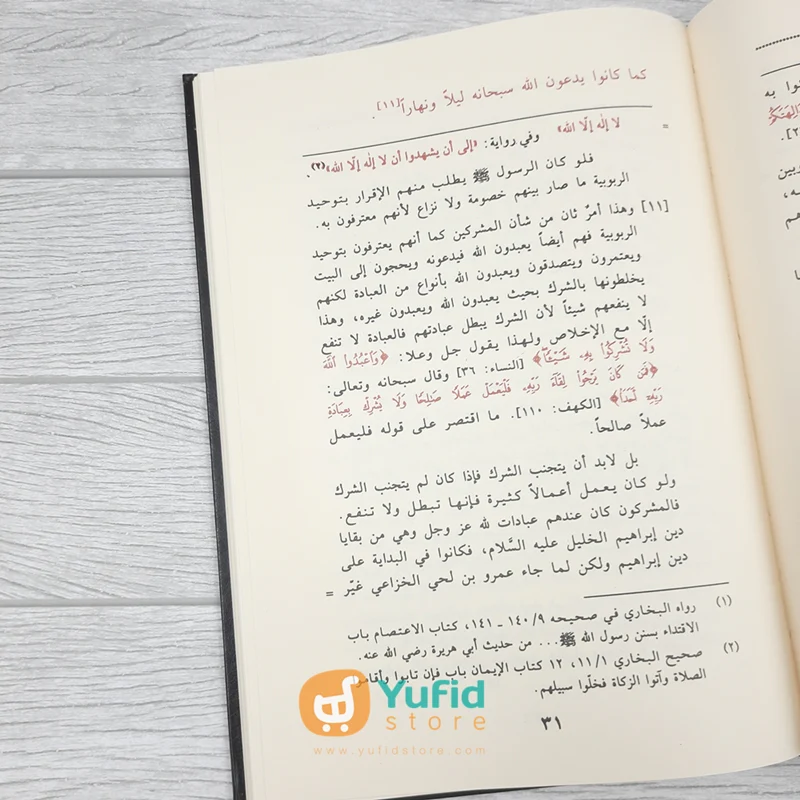 كما كانوا يدعون الله سبحانه ليلاً ونهاراً[١١].
= لا إله إلّا الله» وفي رواية: «إلى أن يشهدوا أن لا إله إلّا الله»(٢).
فلو كان الرسول ﷺ يطلب منهم الإقرار بتوحيد
الربوبية ما صار بينهم خصومة ولا نزاع لأنهم معترفون به.
[١١] وهذا أمرٌ ثان من شأن المشركين كما أنهم يعترفون بتوحيد
الربوبية فهم أيضاً يعبدون الله فيدعونه ويحجون إلى البيت
ويعتمرون ويتصدقون ويعبدون الله بأنواع من العبادة لكنهم
يخلطونها بالشرك بحيث يعبدون الله ويعبدون غيره، وهذا
لا ينفعهم شيئاً لأن الشرك يبطل عبادتهم فالعبادة لا تنفع
إلّا مع الإخلاص ولهذا يقول جل وعلا: ﴿وَٱعۡبُدُواْ ٱللَّهَ
وَلَا تُشۡرِكُواْ بِهِۦ شَيۡـٔٗاۖ﴾ [النساء: ٣٦] وقال سبحانه وتعالى:
﴿فَمَن كَانَ يَرۡجُواْ لِقَآءَ رَبِّهِۦ فَلۡيَعۡمَلۡ عَمَلٗا صَٰلِحٗا وَلَا يُشۡرِكۡ بِعِبَادَةِ
رَبِّهِۦٓ أَحَدَۢا﴾ [الكهف: ١١٠]. ما اقتصر على قوله فليعمل
عملاً صالحاً.
بل لابد أن يتجنب الشرك فإذا كان لم يتجنب الشرك
ولو كان يعمل أعمالاً كثيرة فإنها تبطل ولا تنفع.
فالمشركون كان عندهم عبادات لله عز وجل وهي من بقايا
دين إبراهيم الخليل عليه السَّلام، فكانوا في البداية على
دين إبراهيم ولكن لما جاء عمرو بن لحي الخزاعي غيّر =
(١) رواه البخاري في صحيحه ١٤٠/٩ - ١٤١، كتاب الاعتصام باب
الاقتداء بسنن رسول الله ﷺ... من حديث أبي هريرة رضي الله عنه.
(٢) صحيح البخاري ١١/١، ١٢ كتاب الإيمان باب فإن تابوا وأقاموا
الصلاة وآتوا الزكاة فخلّوا سبيلهم.
٣١
Yufid
store
www.yufidstore.com